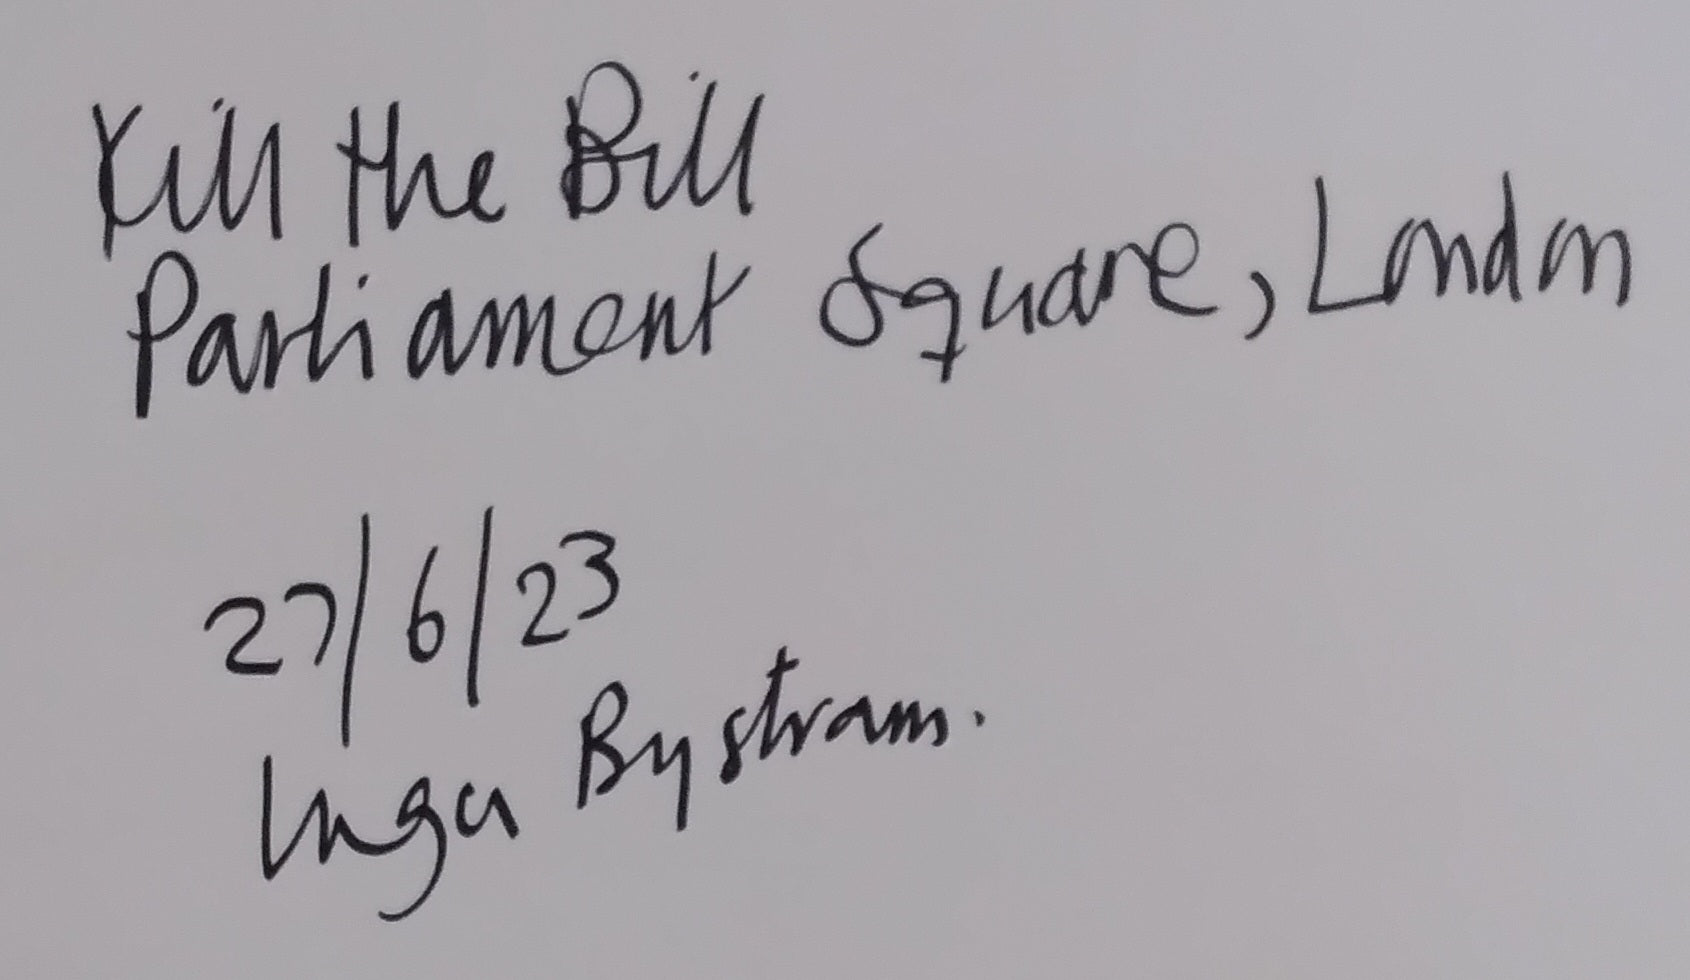 Kill the Bill
Parliament Square, London
27/6/23
Inga Bystram.